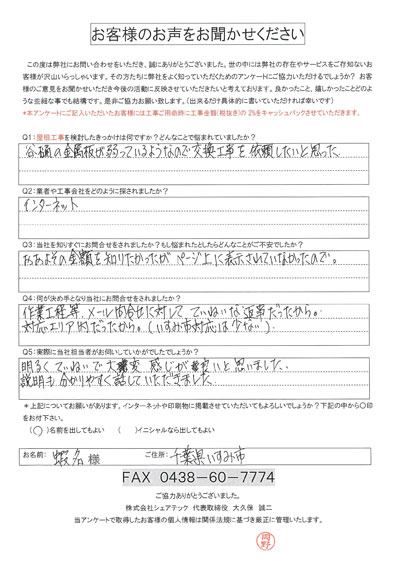 お客様のお声をお聞かせください
この度は弊社にお問い合わせをいただき、誠にありがとうございました。世の中には弊社の存在やサービスをご存知ないお
客様が沢山いらっしゃいます。その方たちに弊社をよく知っていただくためのアンケートにご協力いただけるでしょうか？ お客
様のご意見をお聞かせいただき今後の活動に反映させていただきたいと考えております。良かったこと、嬉しかったことどのよ
うな些細な事でも結構です。是非ご協力お願い致します。（出来るだけ具体的に書いていただければ幸いです）
*本アンケートにご記入いただいたお客様には工事ご用命時に工事金額（税抜き）の 2%をキャッシュバックさせていただきます。
Q1：屋根工事を検討したきっかけは何ですか？どんなことで悩まれていましたか？
谷樋の金属板が弱っているようなので交換工事を依頼したいと思った
Q2：業者や工事会社をどのように探されましたか？
インターネット
Q3：当社を知りすぐにお問合せをされましたか？もし悩まれたとしたらどんなことがご不安でしたか？
おおよその金額を知りたかったがページ上に表示されていなかったので。
Q4：何が決め手となり当社にお問合せをされましたか？
作業工程等、メール問合せに対して、ていねいな返事だったから。
対応エリア内だったから。（いすみ市対応は少ない）
Q5：実際に当社担当者がお伺いしていかがでしたでしょうか？
明るくていねいで大変 感じが良いと思いました。
説明も分かりやすく話していただきました。
*上記についてお願いがあります。インターネットや印刷物に掲載させていただいてもよろしいでしょうか？下記の中から〇印
をお付下さい。
（○）名前を出してもよい （ ）イニシャルなら出してもよい
お名前： 蝦名 様 ご住所： 千葉県いすみ市
FAX 0438-60-7774
ご協力ありがとうございました。
株式会社シェアテック 代表取締役 大久保 誠二
当アンケートで取得したお客様の個人情報は関係法規に基づき厳正に管理いたします。
岡野